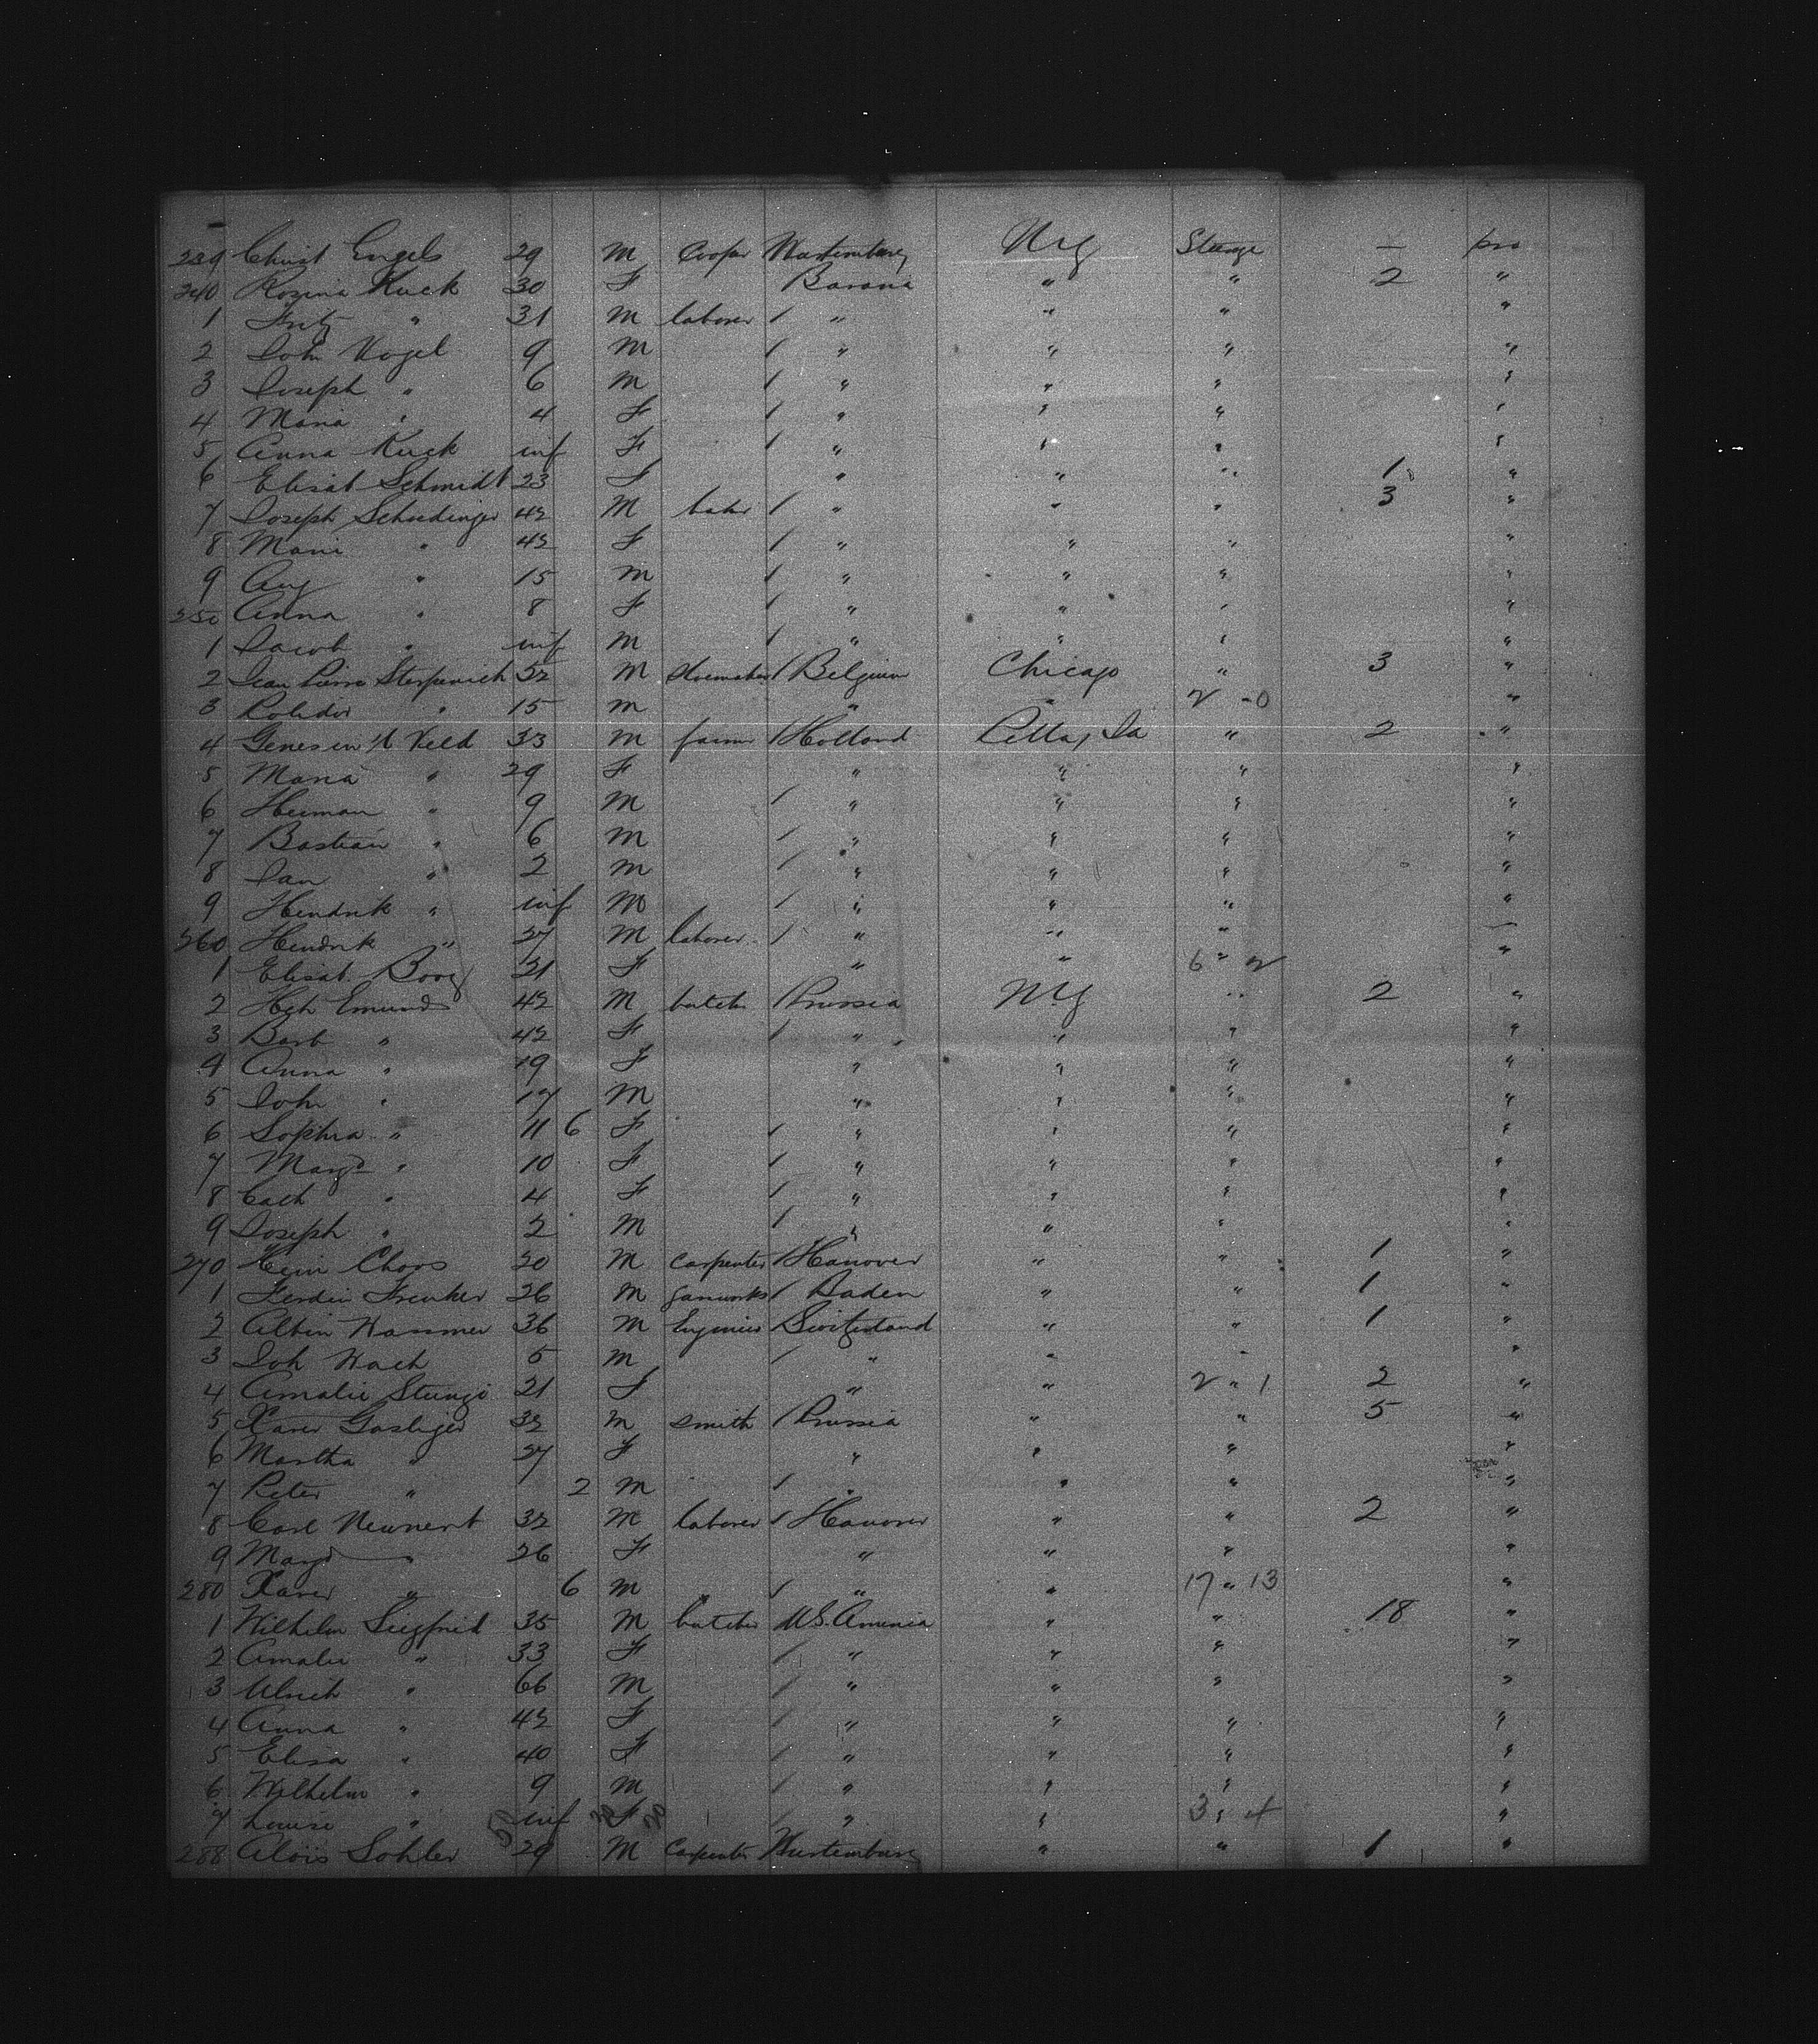 239 Christ Engels 29 M Cooper Wurtemburg NY Steerage — pro
240 Rosina Kuck 30 F Bavaria " " 2 "
1 Fritz " 31 M laborer / " " " "
2 Joh Vogel 9 M / " " " "
3 Joseph " 6 M / " " " "
4 Maria " 4 F / " " " "
5 Anna Kuck inf F / " " " "
6 Elisab Schmidt 23 F " " " 1 "
7 Joseph Schudinger 42 M baker / " " " 3 "
8 Marie " 42 F / " " " "
9 Aug " 15 M / " " " "
250 Anna " 8 F / " " " "
1 Jacob " inf M / " " " "
2 Jean Pierre 52 M Shoemaker / Belgium Chicago " 3 "
3 " 15 M " " 2 " 0 "
4 Veld 33 M farmer / Holland Pella, Ia " 2 "
5 Maria " 29 F " " " "
6 Herman " 9 M / " " " "
7 Bastian " 6 M / " " " "
8 Jan " 2 M / " " " "
9 Hendrik " inf M / " " " "
260 Hendrik " 27 M laborer / " " " "
1 Elisab 21 F " " 6 " 2 "
2 Hch Emunds 42 M butcher / Prussia NY " 2 "
3 Barb " 42 F / " " " "
4 Anna " 19 F " " " "
5 Joh " 17 M " " " "
6 Sophia " 11 6 F / " " " "
7 Margd " 10 F / " " " "
8 Cath " 4 F / " " " "
9 Joseph " 2 M / " " " "
270 Heinr Choos 20 M Carpenter / Hanover " " 1 "
1 Ferdin Frenker 26 M / Baden " " 1 "
2 Albin Wassmer 36 M Engineer Switzerland " " 1 "
3 Joh Wach 5 M / " " " "
4 Amalie 21 F " " 2 " 1 2 "
5 Xaver Gasteiger 32 M smith / Prussia " " 5 "
6 Martha " 27 F " " " "
7 Peter " 2 M / " " " "
8 Carl Neunert 32 M laborer / Hanover " " 2 "
9 Margd " 26 F " " " "
280 Xaver " 6 M / " " 17 " 13 "
1 Wilhelm Siegfried 35 M butcher US. America " " 18 "
2 Amalie " 33 F / " " " "
3 Ulrich " 66 M / " " " "
4 Anna " 42 F / " " " "
5 Elisa " 40 F / " " " "
6 Wilhelm " 9 M / " " " "
7 Louise " inf F / " " 3 " 4 "
288 Alois Sohler 29 M Carpenter Wurtemburg " " 1 "